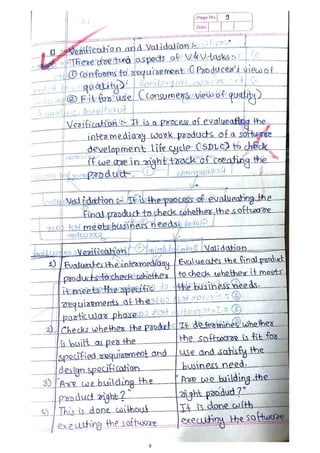 Page No. 9
Date
Verification and Validation :-
There are two aspects of V&V tasks :-
① Conforms to requirement (Producer's view of
quality)
② Fit for use (consumers view of quality)
Verification :- It is a process of evalueating the
intermediary work products of a software
development life cycle (SDLC) to check
if we are in right track of creating the
product.
Validation :- It is the process of evalueating the
final product to check whether the software
meets business needs.
Verification Validation
1) Evaluates the intermediary Evalueates the final product
products to check whether to check whether it meets
it meets the specific the business needs.
requirements of the
particular phase
2) Checks whether the product It determines whether
is built as per the the software is fit for
specified requirement and use and satisfy the
design specification business need.
3) "Are we building the "Are we building the
product right?" right product?"
5) This is done without It is done with
executing the software executing the software
9